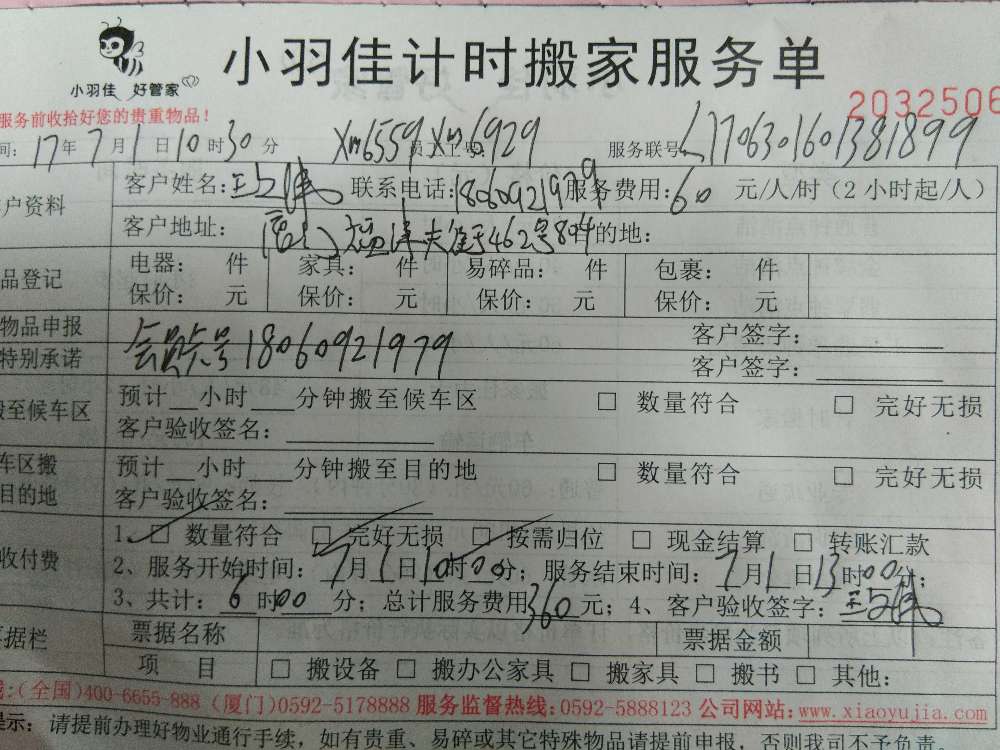 小羽佳 好管家
小羽佳计时搬家服务单
服务前收拾好您的贵重物品！
2032506
间：17年7月1日10时30分 Xm6559 员工工号：Xm6929 服务联号
户资料 客户姓名： 联系电话：18060921979 服务费用：60 元/人/时（2小时起/人）
客户地址： 462号 目的地：
品登记 电器： 件 家具： 件 易碎品： 件 包裹： 件
保价： 元 保价： 元 保价： 元 保价： 元
物品申报 会员卡号18060921979 客户签字：
特别承诺 客户签字：
搬至候车区 预计__小时___分钟搬至候车区 □ 数量符合 □ 完好无损
客户验收签名：
车区搬 预计__小时___分钟搬至目的地 □ 数量符合 □ 完好无损
目的地 客户验收签名：
收付费 1、□ 数量符合 □ 完好无损 □ 按需归位 □ 现金结算 □ 转账汇款
2、服务开始时间：7月1日10时00分；服务结束时间：7月1日13时00分；
3、共计：6时00分；总计服务费用360元；4、客户验收签字：
票据栏 票据名称 票据金额
项 目 □ 搬设备 □ 搬办公家具 □ 搬家具 □ 搬书 □ 其他：
线：(全国)400-6655-888 (厦门)0592-5178888 服务监督热线：0592-5888123 公司网站：www.xiaoyujia.com
提示：请提前办理好物业通行手续，如有贵重、易碎或其它特殊物品请提前申报，否则我司不予负责